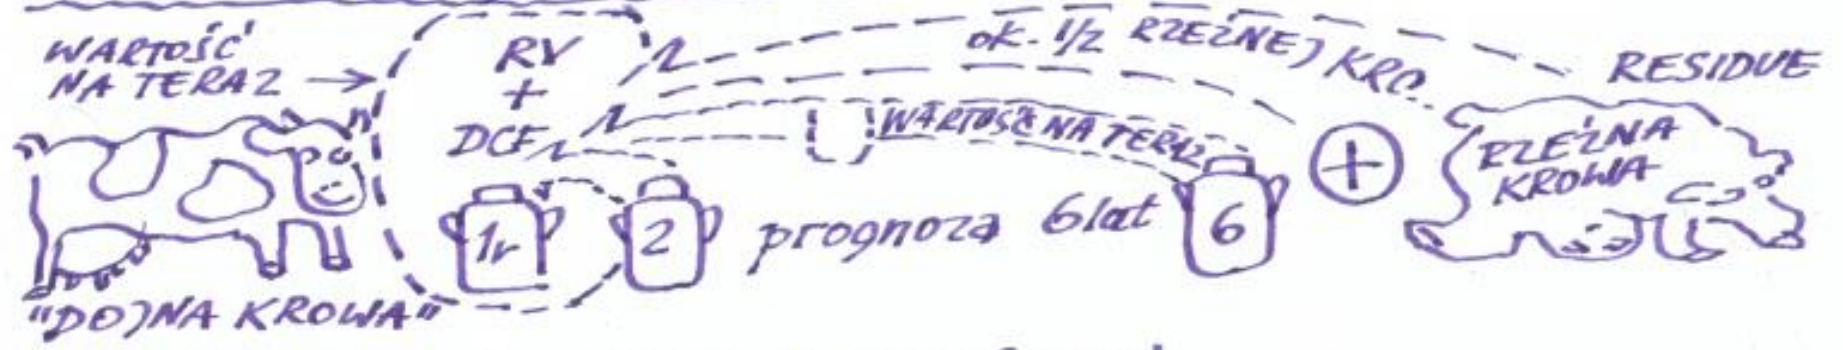 WARTOŚĆ
NA TERAZ
RV
+
DCF
ok. 1/2 RZEŹNEJ KRO..
RESIDUE
WARTOŚĆ NA TERAZ
+
RZEŹNA
KROWA
1r
2
prognoza 6 lat
6
"DOJNA KROWA"